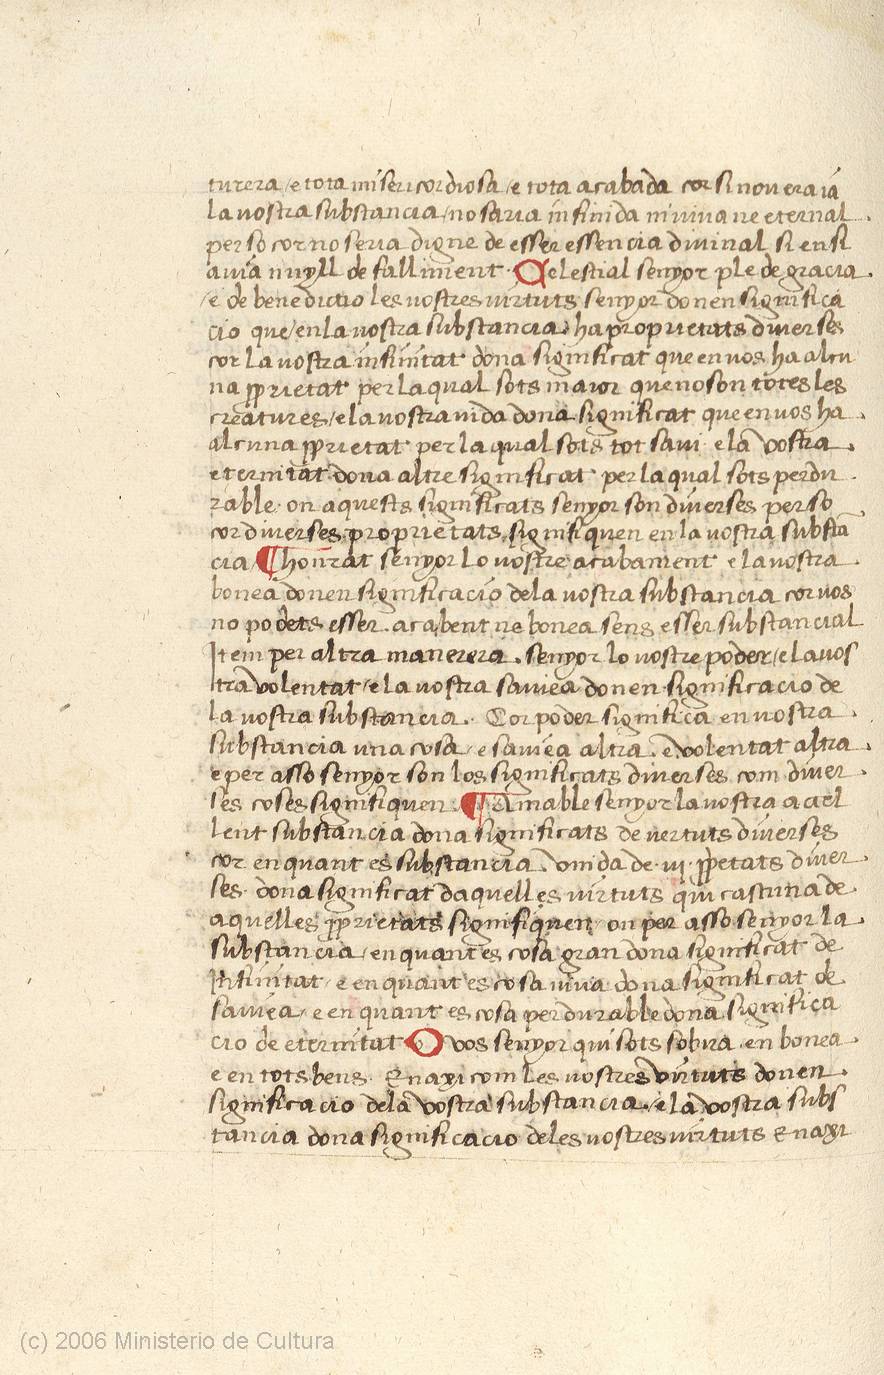 turera / e tota misericordiosa / e tota acabada cor si no v era ia
la vostra substancia / no saria infinida ni viva ne eternal .
per so cor no seria digne de esser essencia divinal si en si
avia nuyll de falliment · Celestial senyor ple de gracia .
/ e de benedictio les vostres virtuts senyor donen significa
cio que / en la vostra substancia ha proprietats diverses
cor la vostra infinitat dona significat que en vos ha alcu
na pprietat per la qual sots maior que no son totes les
creatures / e la vostra vida dona significat que en vos ha .
alcuna pprietat per la qual sots tot savi · e la vostra .
eternitat dona altre significat per la qual sots perdu .
rable · on aquests significats senyor son diverses per so .
cor diverses proprietats signifiquen en la vostra substā
cia ¶ honrat senyor lo vostre acabament e la vostra .
bonea donen significacio de la vostra substancia cor vos
no podets esser . acabent ne bonea sens esser substancial
Item per altra manerera . senyor lo vostre poder / e la vos
tra volentat / e la vostra saviea donen significacio de
la vostra substancia . Cor poder significa en vostra .
substancia una cosa / e saviea altra . e volentat altra .
e per asso senyor son los significats diverses com diver .
ses coses signifiquen . ¶ Amable senyor la vostra acel
lent substancia dona significats de vertuts diverses
cor en quant es substancia . vnida de · vj · ppetats diver .
ses · dona significat daquelles virtuts qui cascuna de .
aquelles pprietats signifiquen · on per asso senyor la .
substancia / en quant es cosa gran dona significat de
Infinitat / e en quant es cosa viva dona significat de
saviea / e en quant es cosa perdurable dona significa
cio de eternitat O vos senyor qui sots sobira en bonea .
e en tots bens · Enaxi com les vostres virtuts donen .
significacio de la vostra substancia . / e la vostra subs
tancia dona significacio de les vostres virtuts Enaxi
(c) 2006 Ministerio de Cultura